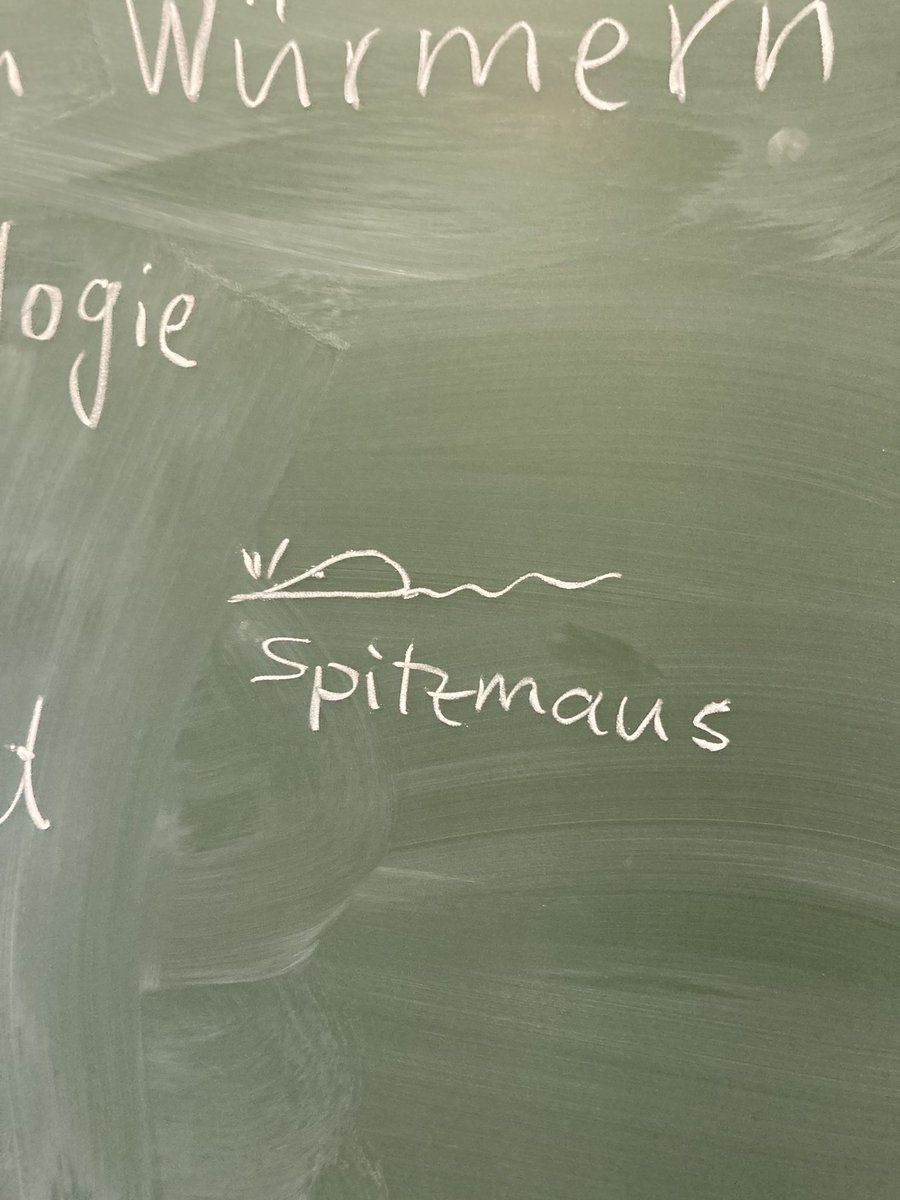 n Würmern
logie
Spitzmaus
t